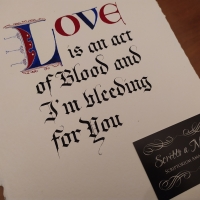 LOVE
is an act
of Blood and
I'm bleeding
for You
Scribbs